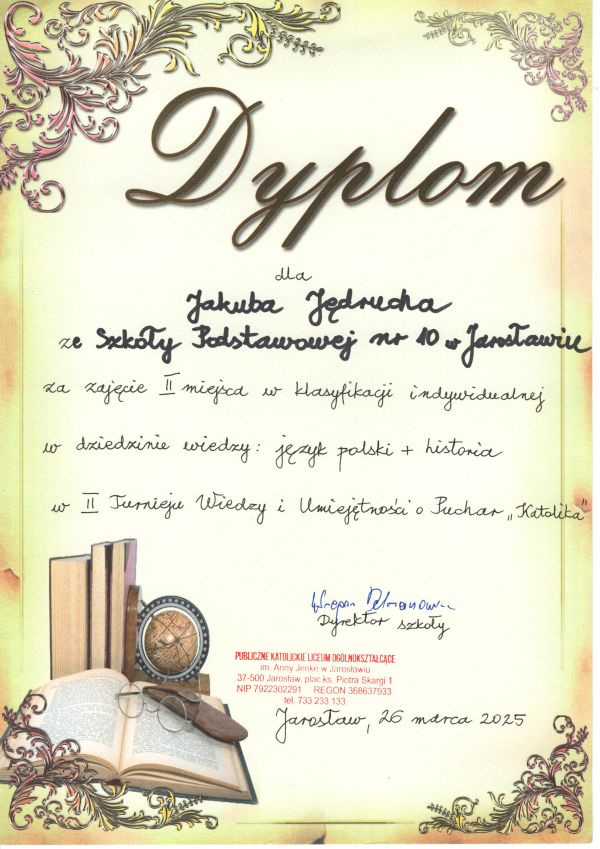 Dyplom
dla
Jakuba Jędrucha
ze Szkoły Podstawowej nr 10 w Jarosławiu
za zajęcie II miejsca w klasyfikacji indywidualnej
w dziedzinie wiedzy: język polski + historia
w II Turnieju Wiedzy i Umiejętności o Puchar „Katolika"
Dyrektor szkoły
PUBLICZNE KATOLICKIE LICEUM OGÓLNOKSZTAŁCĄCE
im. Anny Jenke w Jarosławiu
37-500 Jarosław, plac ks. Piotra Skargi 1
NIP 7922302291 REGON 368637933
tel. 733 233 133
Jarosław, 26 marca 2025